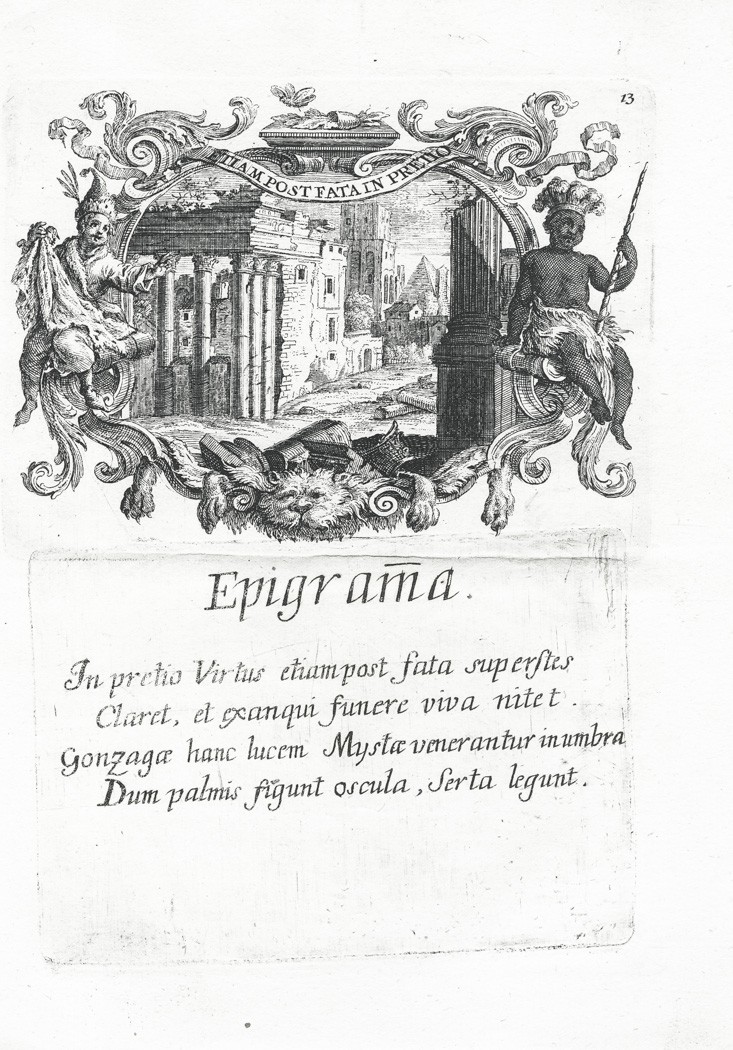 13
ETIAM POST FATA IN PRETIO
Epigram̄a.
In pretio Virtus etiam post fata superstes
Claret, et exanqui funere viva nitet.
Gonzagæ hanc lucem Mystæ venerantur in umbra
Dum palmis figunt oscula, Serta legunt.